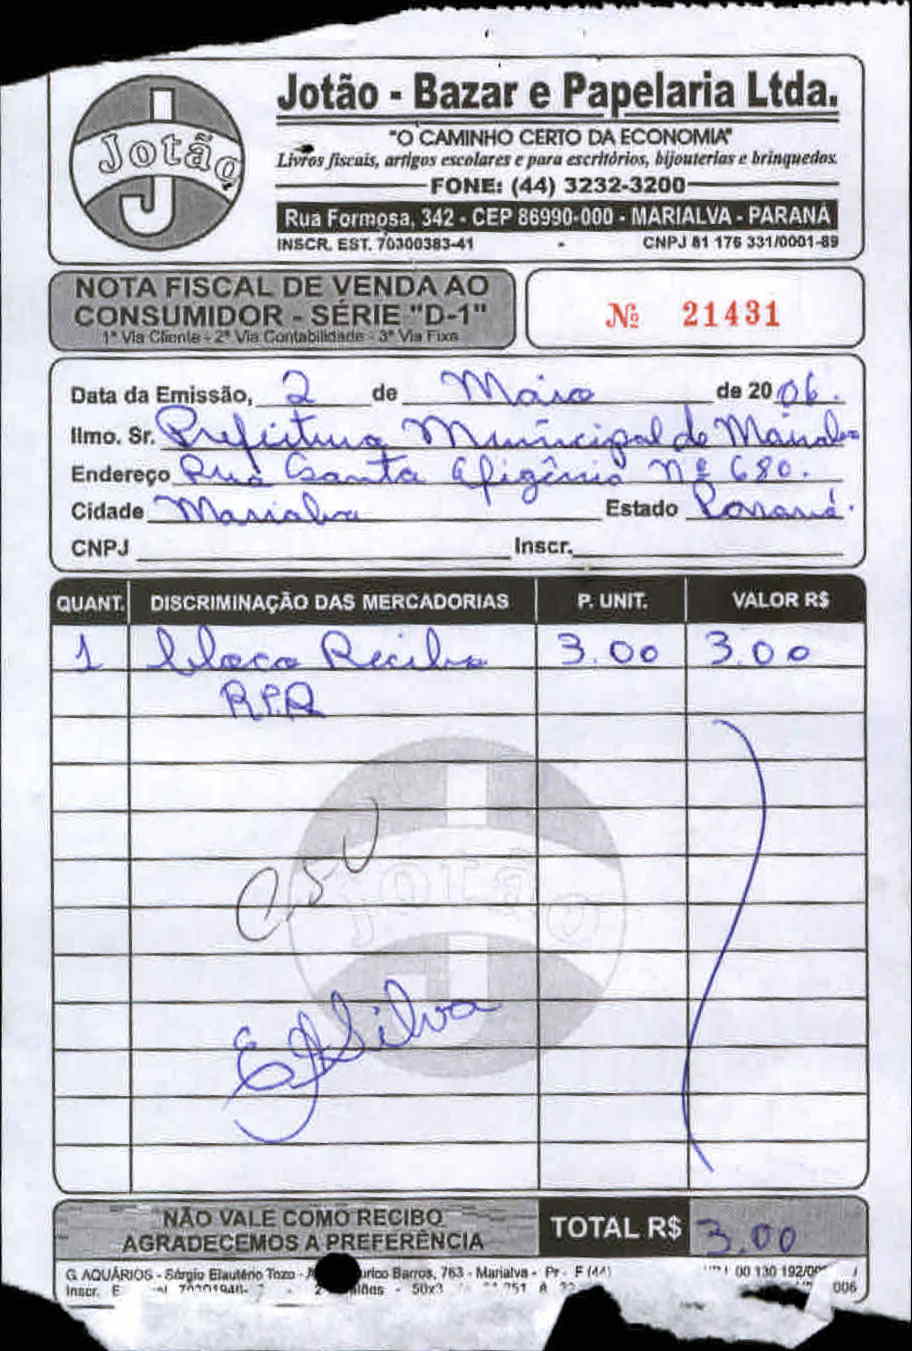 Jotão
Jotão - Bazar e Papelaria Ltda.
"O CAMINHO CERTO DA ECONOMIA"
Livros fiscais, artigos escolares e para escritórios, bijouterias e brinquedos.
FONE: (44) 3232-3200
Rua Formosa, 342 - CEP 86990-000 - MARIALVA - PARANÁ
INSCR. EST. 70300383-41 - CNPJ 81 176 331/0001-89
NOTA FISCAL DE VENDA AO
CONSUMIDOR - SÉRIE "D-1"
1ª Via Cliente - 2ª Via Contabilidade - 3ª Via Fixa
Nº 21431
Data da Emissão, 2 de Maio de 2006.
Ilmo. Sr. Prefeitura Municipal de
Endereço Rua Santa Efigênia nº 680.
Cidade Marialva Estado Paraná.
CNPJ Inscr.
QUANT. DISCRIMINAÇÃO DAS MERCADORIAS P. UNIT. VALOR R$
1 bloco Recibo 3.00 3.00
R.P.A
Jotão
C.S.U
EJSilva
NÃO VALE COMO RECIBO
AGRADECEMOS A PREFERÊNCIA
TOTAL R$ 3.00
G. AQUÁRIOS - Sérgio Elautério Tozo - Barros, 763 - Marialva - Pr - F (44) 00 130 192/00
Inscr. E 50x3 006